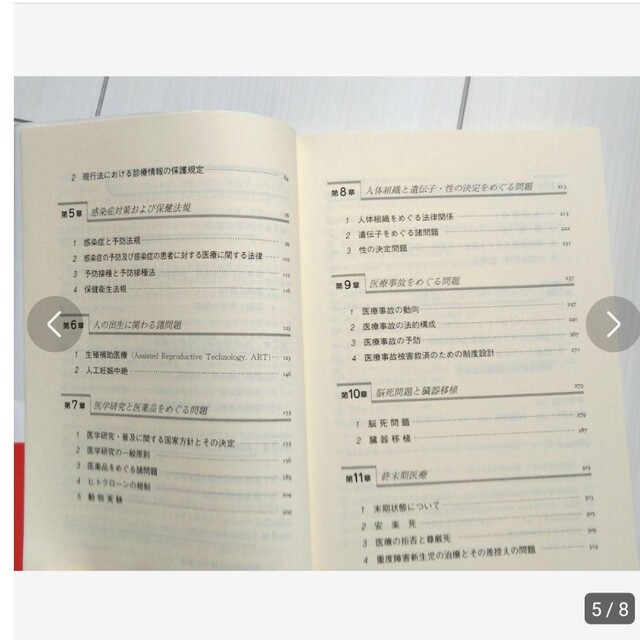 2 現行法における診療情報の保護規定 84
第5章 感染症対策および保健法規 99
1 感染症と予防法規 99
2 感染症の予防及び感染症の患者に対する医療に関する法律 102
3 予防接種と予防接種法 112
4 保健衛生法規 116
第6章 人の出生に関わる諸問題 123
1 生殖補助医療 (Assisted Reproductive Technology, ART) 123
2 人工妊娠中絶 146
第7章 医学研究と医薬品をめぐる問題 153
1 医学研究・普及に関する国家方針とその決定 153
2 医学研究の一般原則 156
3 医薬品をめぐる諸問題 189
4 ヒトクローンの規制 204
5 動物実験 209
第8章 人体組織と遺伝子・性の決定をめぐる問題 213
1 人体組織をめぐる法律関係 213
2 遺伝子をめぐる諸問題 222
3 性の決定問題 231
第9章 医療事故をめぐる問題 237
1 医療事故の動向 237
2 医療事故の法的構成 240
3 医療事故の予防 267
4 医療事故被害救済のための制度設計 271
第10章 脳死問題と臓器移植 279
1 脳死問題 279
2 臓器移植 287
第11章 終末期医療 303
1 末期状態について 303
2 安楽死 305
3 医療の拒否と尊厳死 309
4 重度障害新生児の治療とその差控えの問題 319
5 / 8